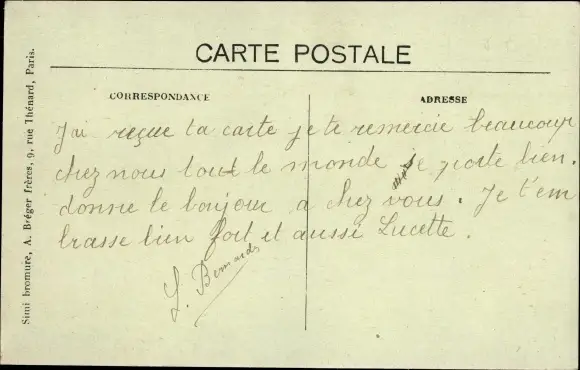 CARTE POSTALE
CORRESPONDANCE
ADRESSE
J'ai reçue ta carte je te remercie beaucoup
chez nous tout le monde se porte bien.
donne le bonjour a chez vous. Je t'em
brasse bien fort et aussi Lucette.
Bernard
Simi bromure, A. Bréger frères, 9, rue Thénard, Paris.